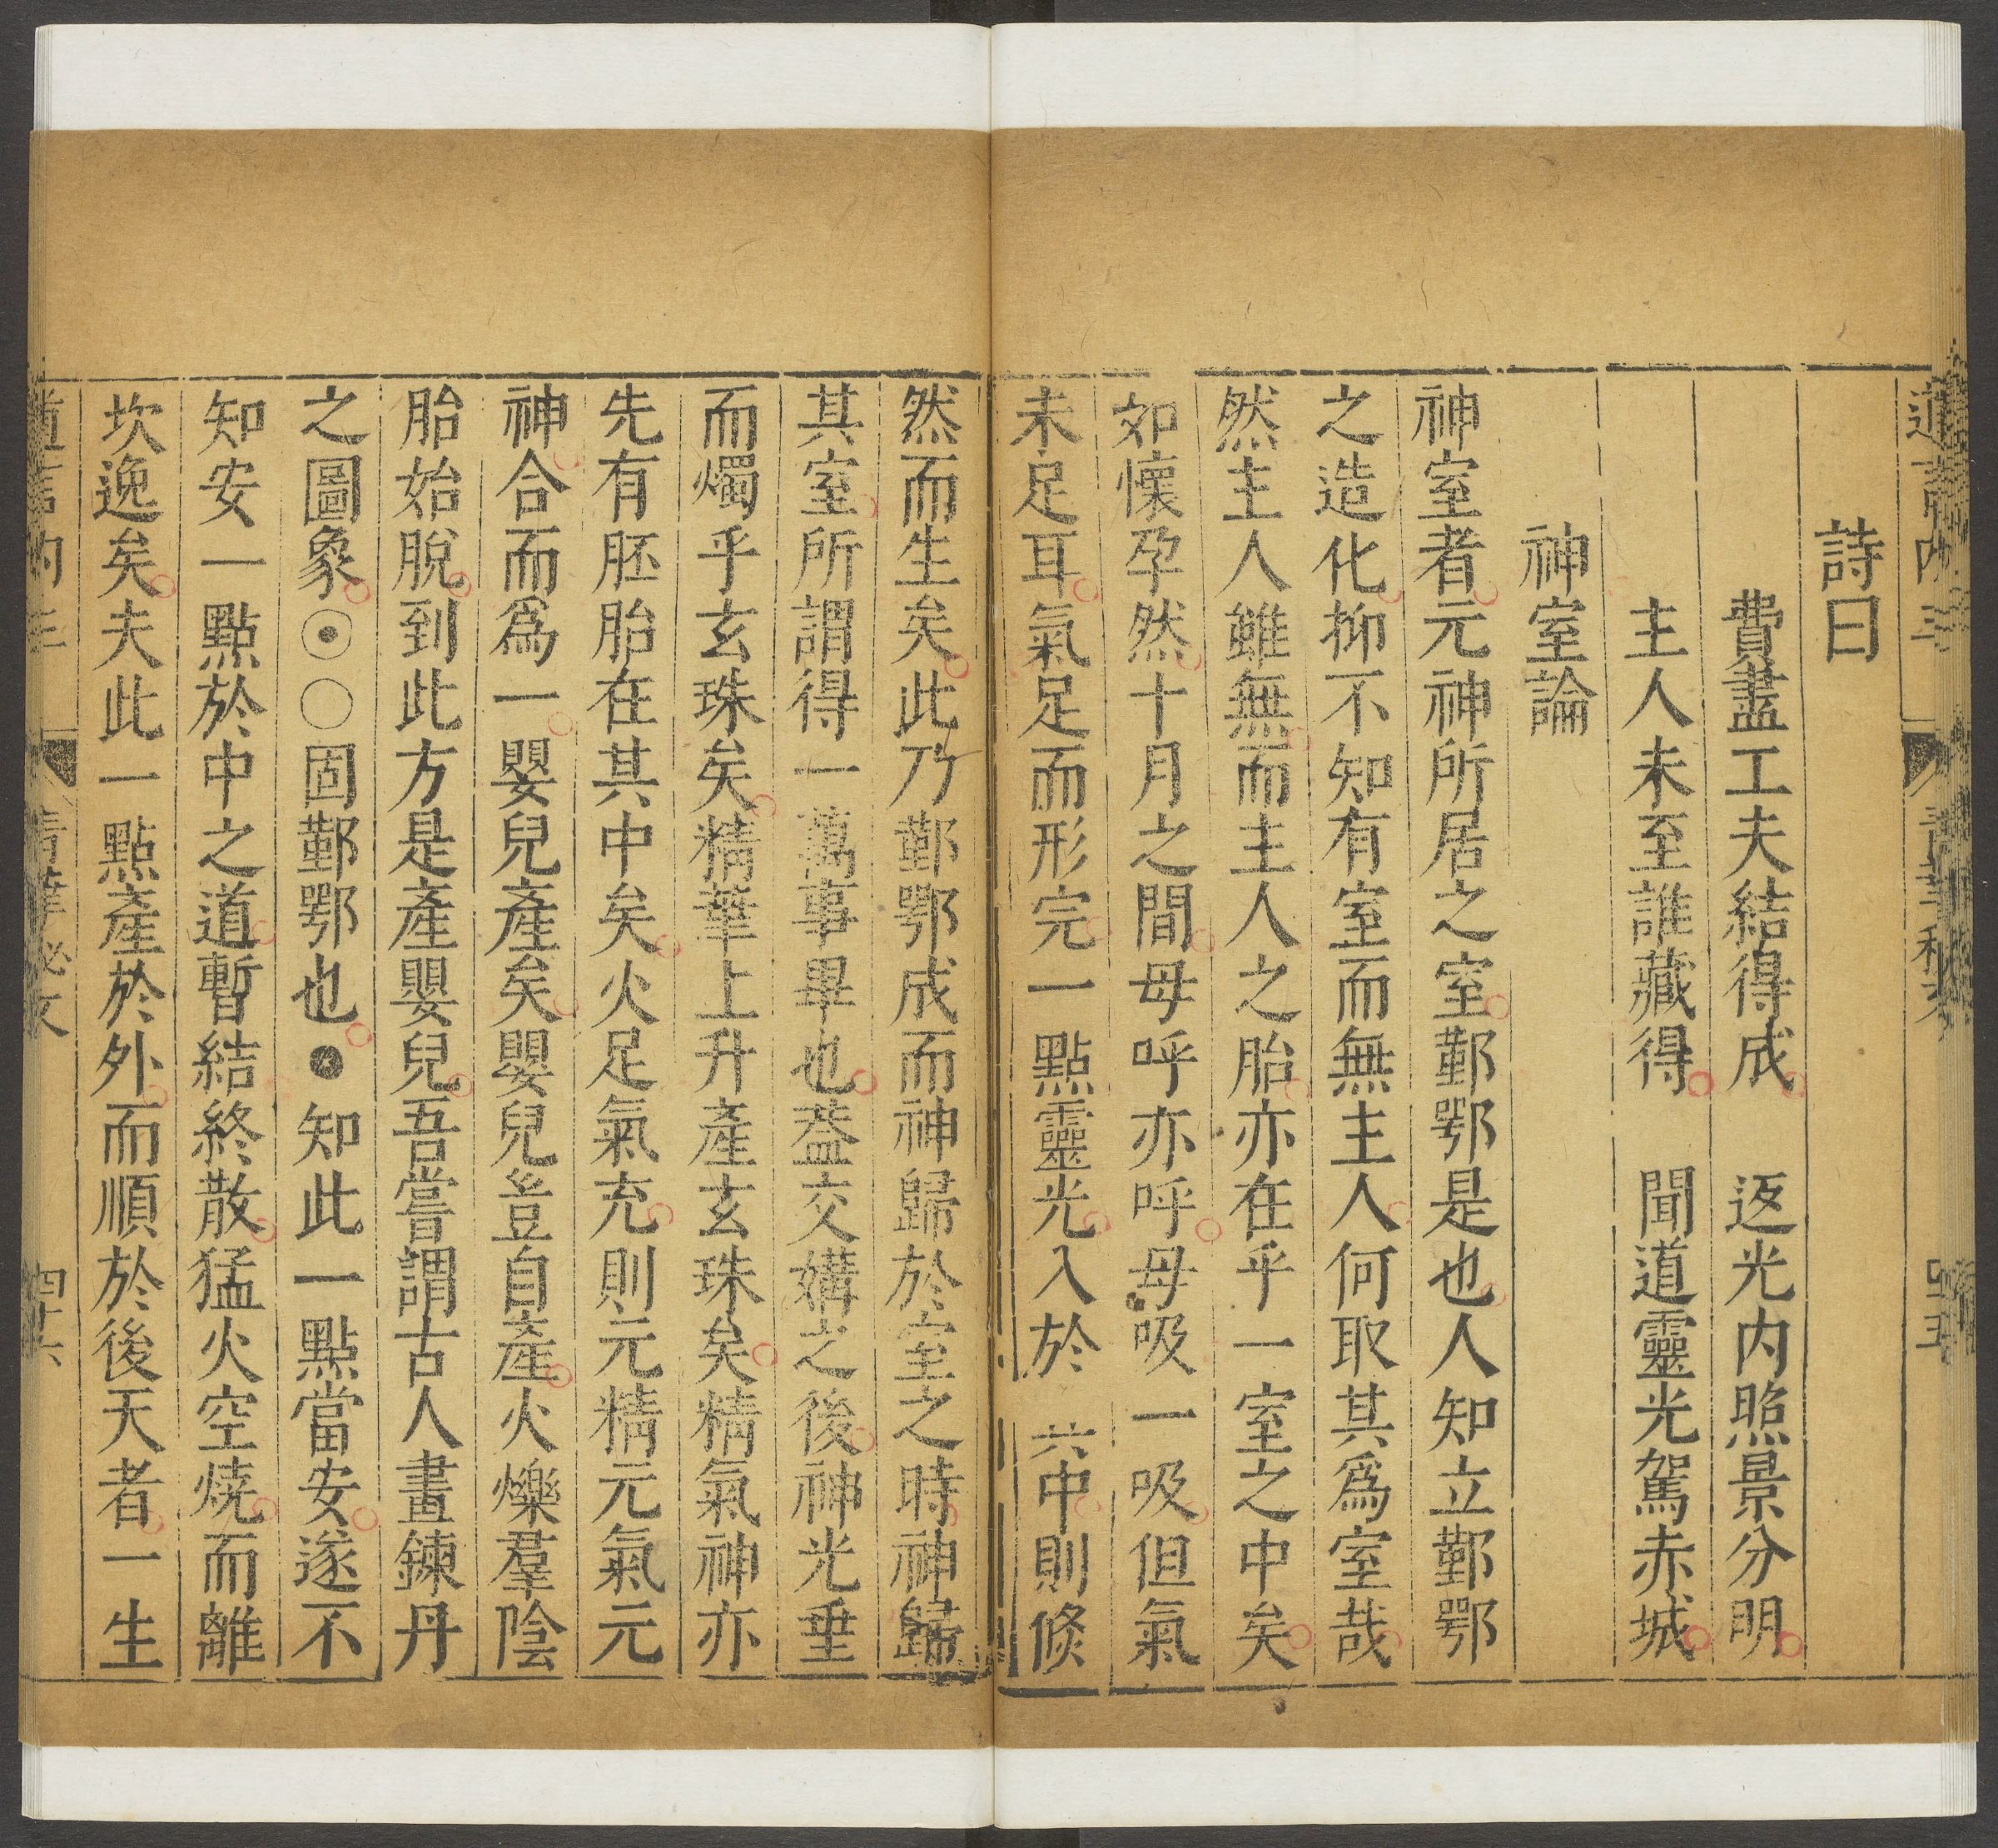 詩曰
費盡工夫結得成 返光内照景分明
主人未至誰藏得 聞道靈光駕赤城
神室論
神室者元神所居之室鄞鄂是也人知立鄞鄂
之造化抑不知有室而無主人何取其爲室哉
然主人雖無而主人之胎亦在乎一室之中矣
如懷孕然十月之間母呼亦呼母吸一吸但氣
未足耳氣足而形完一點靈光入於 中則倐
然而生矣此乃鄞鄂成而神歸於室之時神歸
其室所謂得一萬事畢也葢交媾之後神光垂
而燭乎玄珠矣精華上升產玄珠矣精氣神亦
先有胚胎在其中矣火足氣充則元精元氣元
神合而爲一嬰兒產矣嬰兒豈自產火爍羣陰
胎始脫到此方是產嬰兒吾嘗謂古人畫鍊丹
之圖象☉○固鄞鄂也●知此一點當安遂不
知安一點於中之道暫結終散猛火空燒而離
坎逸矣夫此一點產於外而順於後天者一生
道言内三 精華秘文 四十六